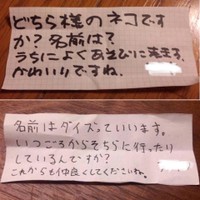 どちら様のネコです
か？名前は？
うちによくあそびに来ます。
かわいいですね。
名前はダイズっていいます。
いつごろからそちらに行ったり
しているんですか？
これからも仲良くしてくださいね。